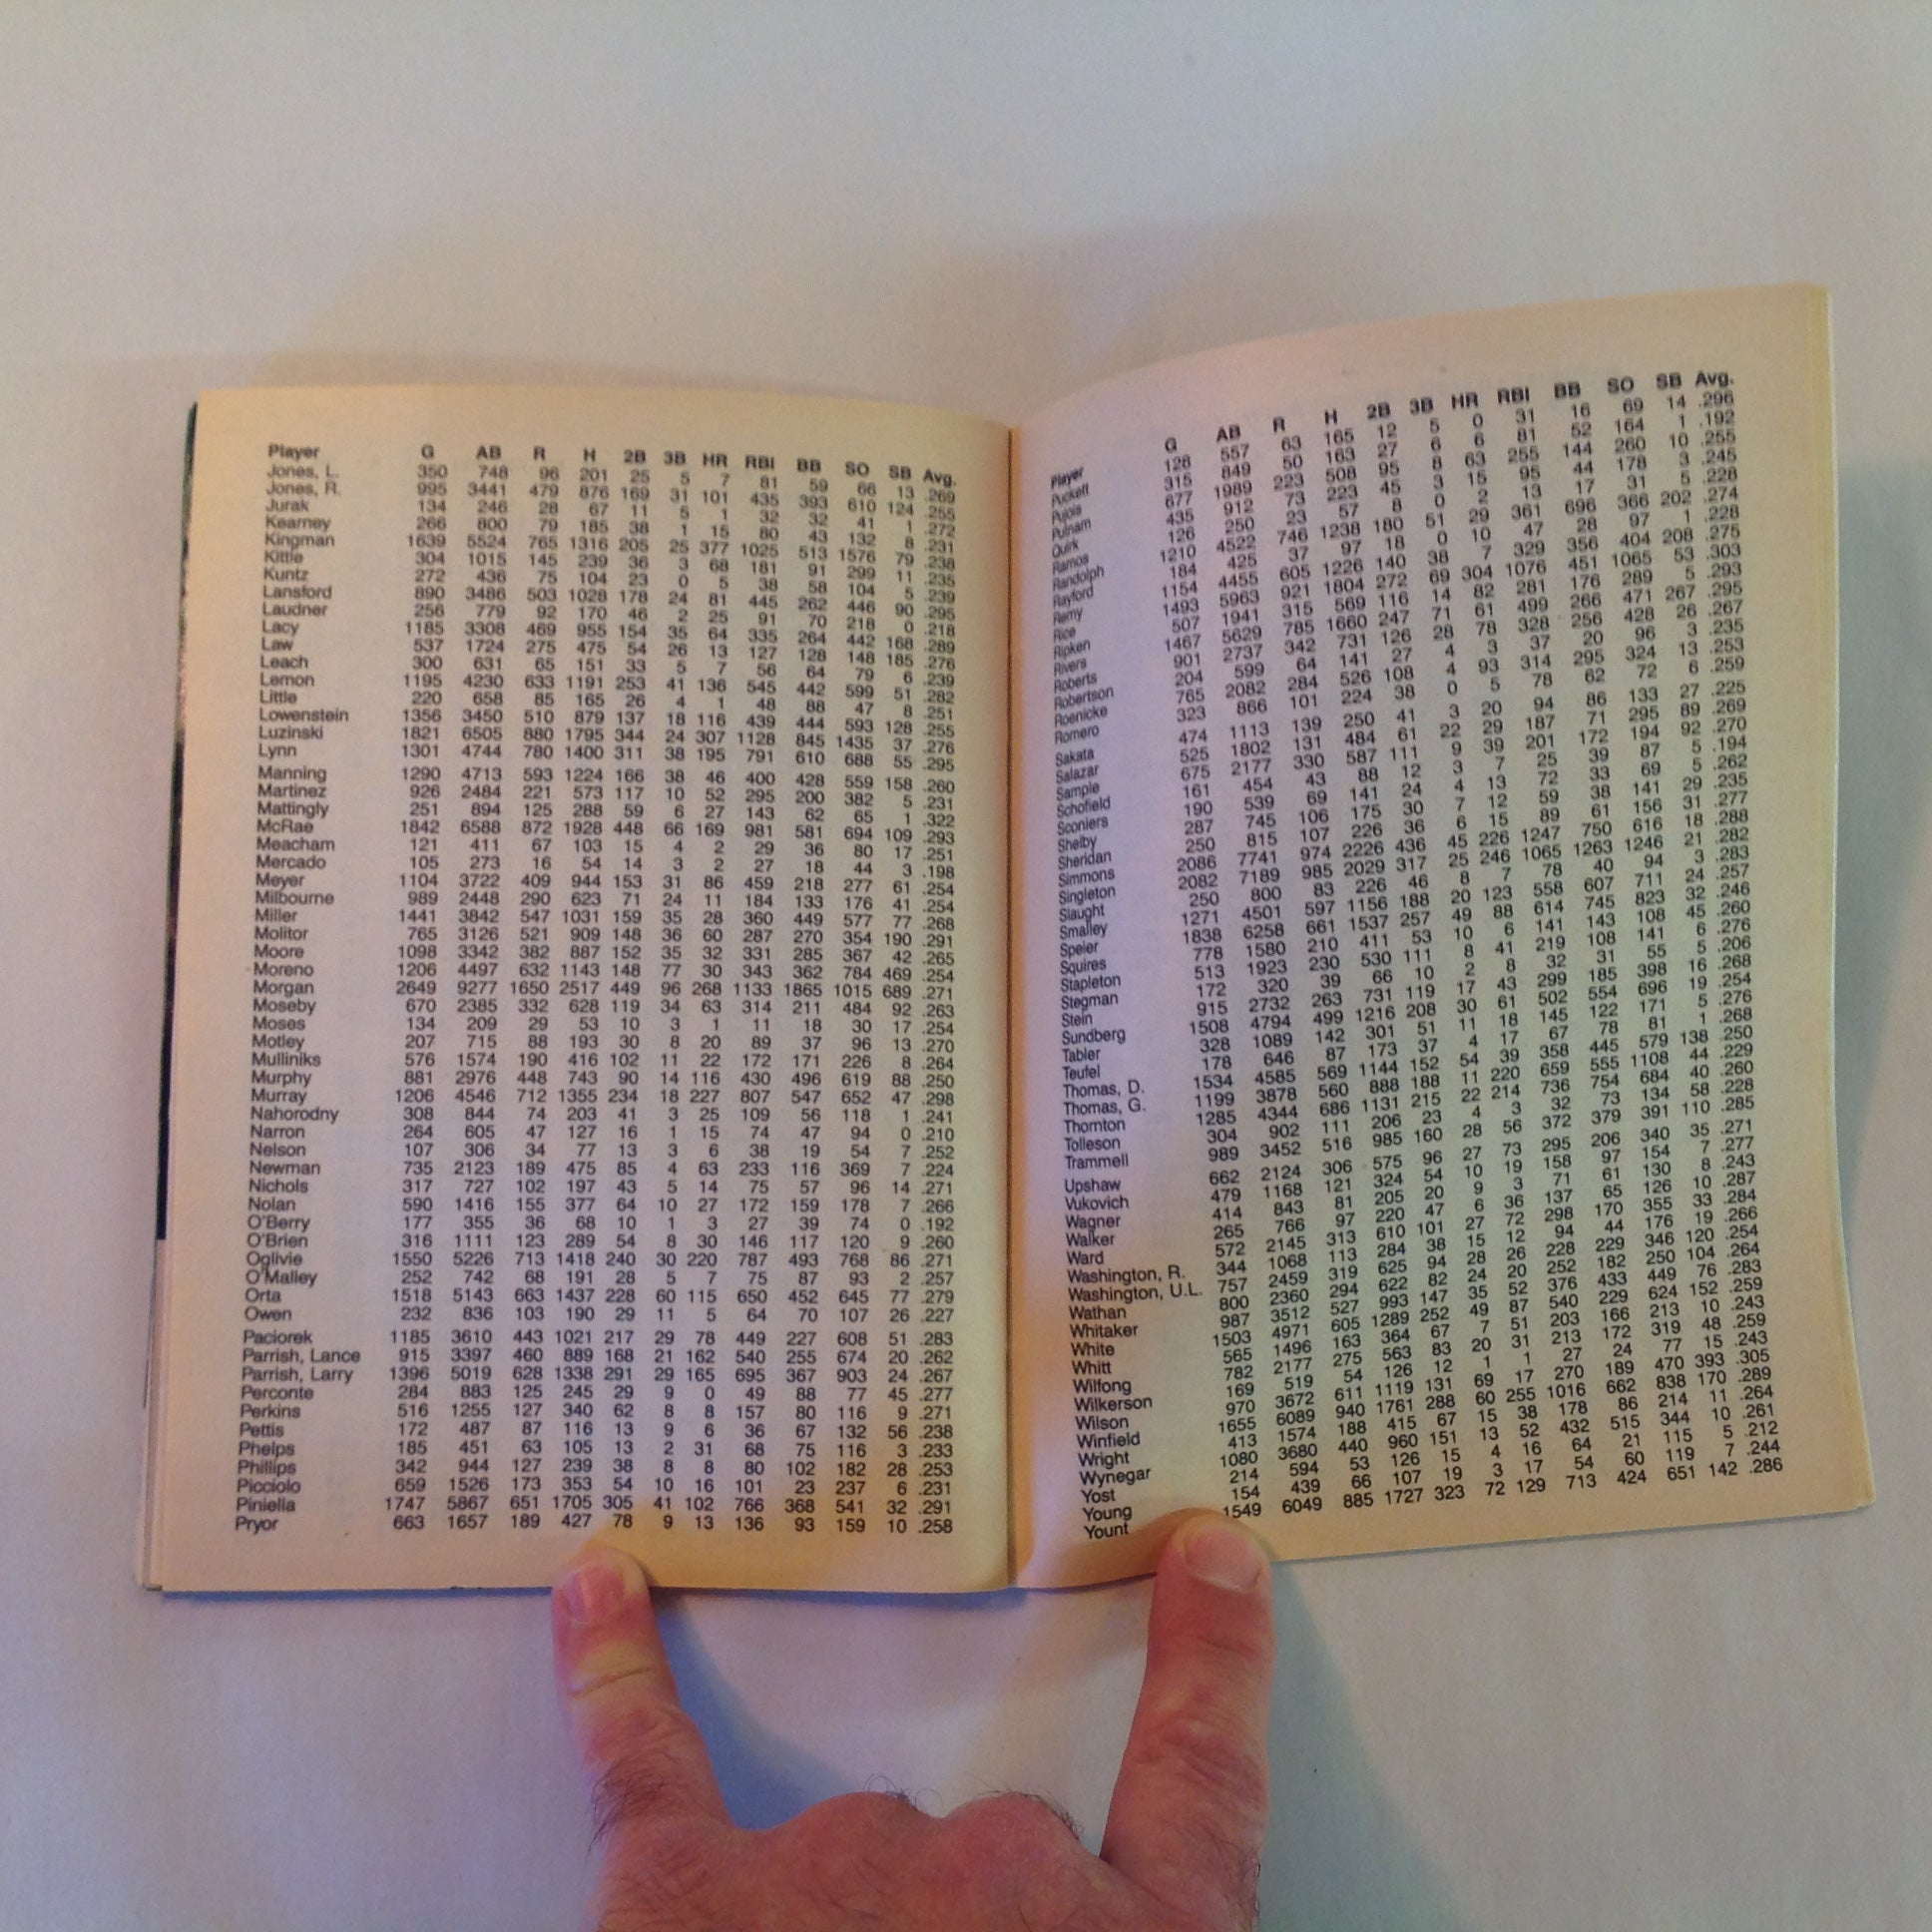 Player G AB R H 2B 3B HR RBI BB SO SB Avg.
Jones, L. 350 748 96 201 25 5 7 81 59 66 13 .269
Jones, R. 995 3441 479 876 169 31 101 435 393 610 124 .255
Jurak 134 246 28 67 11 5 1 32 32 41 1 .272
Kearney 266 800 79 185 38 1 15 80 43 132 8 .231
Kingman 1639 5524 765 1316 205 25 377 1025 513 1576 79 .238
Kittle 304 1015 145 239 36 3 68 181 91 299 11 .235
Kuntz 272 436 75 104 23 0 5 38 58 104 5 .239
Lansford 890 3486 503 1028 178 24 81 445 262 446 90 .295
Laudner 256 779 92 170 46 2 25 91 70 218 0 .218
Lacy 1185 3308 469 955 154 35 64 335 264 442 168 .289
Law 537 1724 275 475 54 26 13 127 128 148 185 .276
Leach 300 631 65 151 33 5 7 56 64 79 6 .239
Lemon 1195 4230 633 1191 253 41 136 545 442 599 51 .282
Little 220 658 85 165 26 4 1 48 88 47 8 .251
Lowenstein 1356 3450 510 879 137 18 116 439 444 593 128 .255
Luzinski 1821 6505 880 1795 344 24 307 1128 845 1435 37 .276
Lynn 1301 4744 780 1400 311 38 195 791 610 688 55 .295
Manning 1290 4713 593 1224 166 38 46 400 428 559 158 .260
Martinez 926 2484 221 573 117 10 52 295 200 382 5 .231
Mattingly 251 894 125 288 59 6 27 143 62 65 1 .322
McRae 1842 6588 872 1928 448 66 169 981 581 694 109 .293
Meacham 121 411 67 103 15 4 2 29 36 80 17 .251
Mercado 105 273 16 54 14 3 2 27 18 44 3 .198
Meyer 1104 3722 409 944 153 31 86 459 218 277 61 .254
Milbourne 989 2448 290 623 71 24 11 184 133 176 41 .254
Miller 1441 3842 547 1031 159 35 28 360 449 577 77 .268
Molitor 765 3126 521 909 148 36 60 287 270 354 190 .291
Moore 1098 3342 382 887 152 35 32 331 285 367 42 .265
Moreno 1206 4497 632 1143 148 77 30 343 362 784 469 .254
Morgan 2649 9277 1650 2517 449 96 268 1133 1865 1015 689 .271
Moseby 670 2385 332 628 119 34 63 314 211 484 92 .263
Moses 134 209 29 53 10 3 1 11 18 30 17 .254
Motley 207 715 88 193 30 8 20 89 37 96 13 .270
Mulliniks 576 1574 190 416 102 11 22 172 171 226 8 .264
Murphy 881 2976 448 743 90 14 116 430 496 619 88 .250
Murray 1206 4546 712 1355 234 18 227 807 547 652 47 .298
Nahorodny 308 844 74 203 41 3 25 109 56 118 1 .241
Narron 264 605 47 127 16 1 15 74 47 94 0 .210
Nelson 107 306 34 77 13 3 6 38 19 54 7 .252
Newman 735 2123 189 475 85 4 63 233 116 369 7 .224
Nichols 317 727 102 197 43 5 14 75 57 96 14 .271
Nolan 590 1416 155 377 64 10 27 172 159 178 7 .266
O'Berry 177 355 36 68 10 1 3 27 39 74 0 .192
O'Brien 316 1111 123 289 54 8 30 146 117 120 9 .260
Oglivie 1550 5226 713 1418 240 30 220 787 493 768 86 .271
O'Malley 252 742 68 191 28 5 7 75 87 93 2 .257
Orta 1518 5143 663 1437 228 60 115 650 452 645 77 .279
Owen 232 836 103 190 29 11 5 64 70 107 26 .227
Paciorek 1185 3610 443 1021 217 29 78 449 227 608 51 .283
Parrish, Lance 915 3397 460 889 168 21 162 540 255 674 20 .262
Parrish, Larry 1396 5019 628 1338 291 29 165 695 367 903 24 .267
Perconte 284 883 125 245 29 9 0 49 88 77 45 .277
Perkins 516 1255 127 340 62 8 8 157 80 116 9 .271
Pettis 172 487 87 116 13 9 6 36 67 132 56 .238
Phelps 185 451 63 105 13 2 31 68 75 116 3 .233
Phillips 342 944 127 239 38 8 8 80 102 182 28 .253
Picciolo 659 1526 173 353 54 10 16 101 23 237 6 .231
Piniella 1747 5867 651 1705 305 41 102 766 368 541 32 .291
Pryor 663 1657 189 427 78 9 13 136 93 159 10 .258
Player G AB R H 2B 3B HR RBI BB SO SB Avg.
Puckett 128 557 63 165 12 5 0 31 16 69 14 .296
Pujols 315 849 50 163 27 6 6 81 52 164 1 .192
Putnam 677 1989 223 508 95 8 63 255 144 260 10 .255
Quirk 435 912 73 223 45 3 15 95 44 178 3 .245
Ramos 126 250 23 57 8 0 2 13 17 31 5 .228
Randolph 1210 4522 746 1238 180 51 29 361 696 366 202 .274
Rayford 184 425 37 97 18 0 10 47 28 97 1 .228
Remy 1154 4455 605 1226 140 38 7 329 356 404 208 .275
Rice 1493 5963 921 1804 272 69 304 1076 451 1065 53 .303
Ripken 507 1941 315 569 116 14 82 281 176 289 5 .293
Rivers 1467 5629 785 1660 247 71 61 499 266 471 267 .295
Roberts 901 2737 342 731 126 28 78 328 256 428 26 .267
Robertson 204 599 64 141 27 4 3 37 20 96 3 .235
Roenicke 765 2082 284 526 108 4 93 314 295 324 13 .253
Romero 323 866 101 224 38 0 5 78 62 72 6 .259
Sakata 474 1113 139 250 41 3 20 94 86 133 27 .225
Salazar 525 1802 131 484 61 22 29 187 71 295 89 .269
Sample 675 2177 330 587 111 9 39 201 172 194 92 .270
Schofield 161 454 43 88 12 3 7 25 39 87 5 .194
Sconiers 190 539 69 141 24 4 13 72 33 69 5 .262
Shelby 287 745 106 175 30 7 12 59 38 141 29 .235
Sheridan 250 815 107 226 36 6 15 89 61 156 31 .277
Simmons 2086 7741 974 2226 436 45 226 1247 750 616 18 .288
Singleton 2082 7189 985 2029 317 25 246 1065 1263 1246 21 .282
Slaught 250 800 83 226 46 8 7 78 40 94 3 .283
Smalley 1271 4501 597 1156 188 20 123 558 607 711 24 .257
Speier 1838 6258 661 1537 257 49 88 614 745 823 32 .246
Squires 778 1580 210 411 53 10 6 141 143 108 45 .260
Stapleton 513 1923 230 530 111 8 41 219 108 141 6 .276
Stegman 172 320 39 66 10 2 8 32 31 55 5 .206
Stein 915 2732 263 731 119 17 43 299 185 398 16 .268
Sundberg 1508 4794 499 1216 208 30 61 502 554 696 19 .254
Tabler 328 1089 142 301 51 11 18 145 122 171 5 .276
Teufel 178 646 87 173 37 4 17 67 78 81 1 .268
Thomas, D. 1534 4585 569 1144 152 54 39 358 445 579 138 .250
Thomas, G. 1199 3878 560 888 188 11 220 659 555 1108 44 .229
Thornton 1285 4344 686 1131 215 22 214 736 754 684 40 .260
Tolleson 304 902 111 206 23 4 3 32 73 134 58 .228
Trammell 989 3452 516 985 160 28 56 372 379 391 110 .285
Upshaw 662 2124 306 575 96 27 73 295 206 340 35 .271
Vukovich 479 1168 121 324 54 10 19 158 97 154 7 .277
Wagner 414 843 81 205 20 9 3 71 61 130 8 .243
Walker 265 766 97 220 47 6 36 137 65 126 10 .287
Ward 572 2145 313 610 101 27 72 298 170 355 33 .284
Washington, R. 344 1068 113 284 38 15 12 94 44 176 19 .266
Washington, U.L. 757 2459 319 625 94 28 26 228 229 346 120 .254
Wathan 800 2360 294 622 82 24 20 252 182 250 104 .264
Whitaker 987 3512 527 993 147 35 52 376 433 449 76 .283
White 1503 4971 605 1289 252 49 87 540 229 624 152 .259
Whitt 565 1496 163 364 67 7 51 203 166 213 10 .243
Wilfong 782 2177 275 563 83 20 31 213 172 319 48 .259
Wilkerson 169 519 54 126 12 1 1 27 24 77 15 .243
Wilson 970 3672 611 1119 131 69 17 270 189 470 393 .305
Winfield 1655 6089 940 1761 288 60 255 1016 662 838 170 .289
Wright 413 1574 188 415 67 15 38 178 86 214 11 .264
Wynegar 1080 3680 440 960 151 13 52 432 515 344 10 .261
Yost 214 594 53 126 15 4 16 64 21 115 5 .212
Young 154 439 66 107 19 3 17 54 60 119 7 .244
Yount 1549 6049 885 1727 323 72 129 713 424 651 142 .286